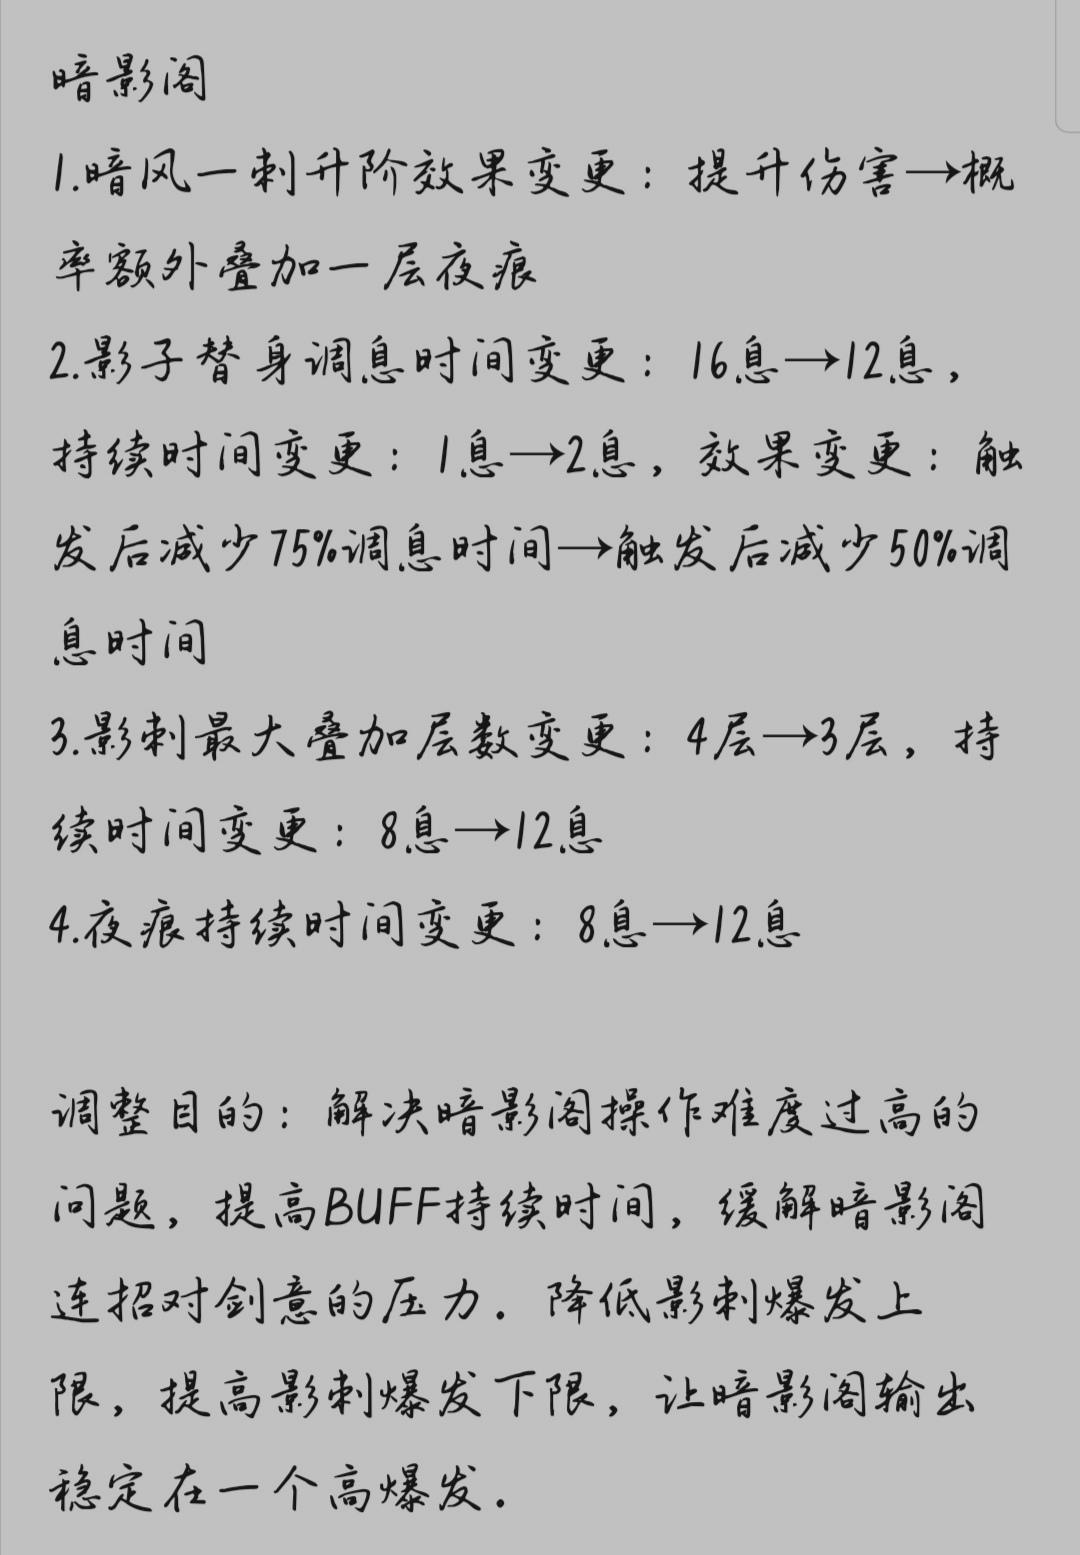 暗影阁
1.暗风一刺升阶效果变更：提升伤害→概
率额外叠加一层夜痕
2.影子替身调息时间变更：16息→12息，
持续时间变更：1息→2息，效果变更：触
发后减少75%调息时间→触发后减少50%调
息时间
3.影刺最大叠加层数变更：4层→3层，持
续时间变更：8息→12息
4.夜痕持续时间变更：8息→12息
调整目的：解决暗影阁操作难度过高的
问题，提高BUFF持续时间，缓解暗影阁
连招对剑意的压力．降低影刺爆发上
限，提高影刺爆发下限，让暗影阁输出
稳定在一个高爆发．